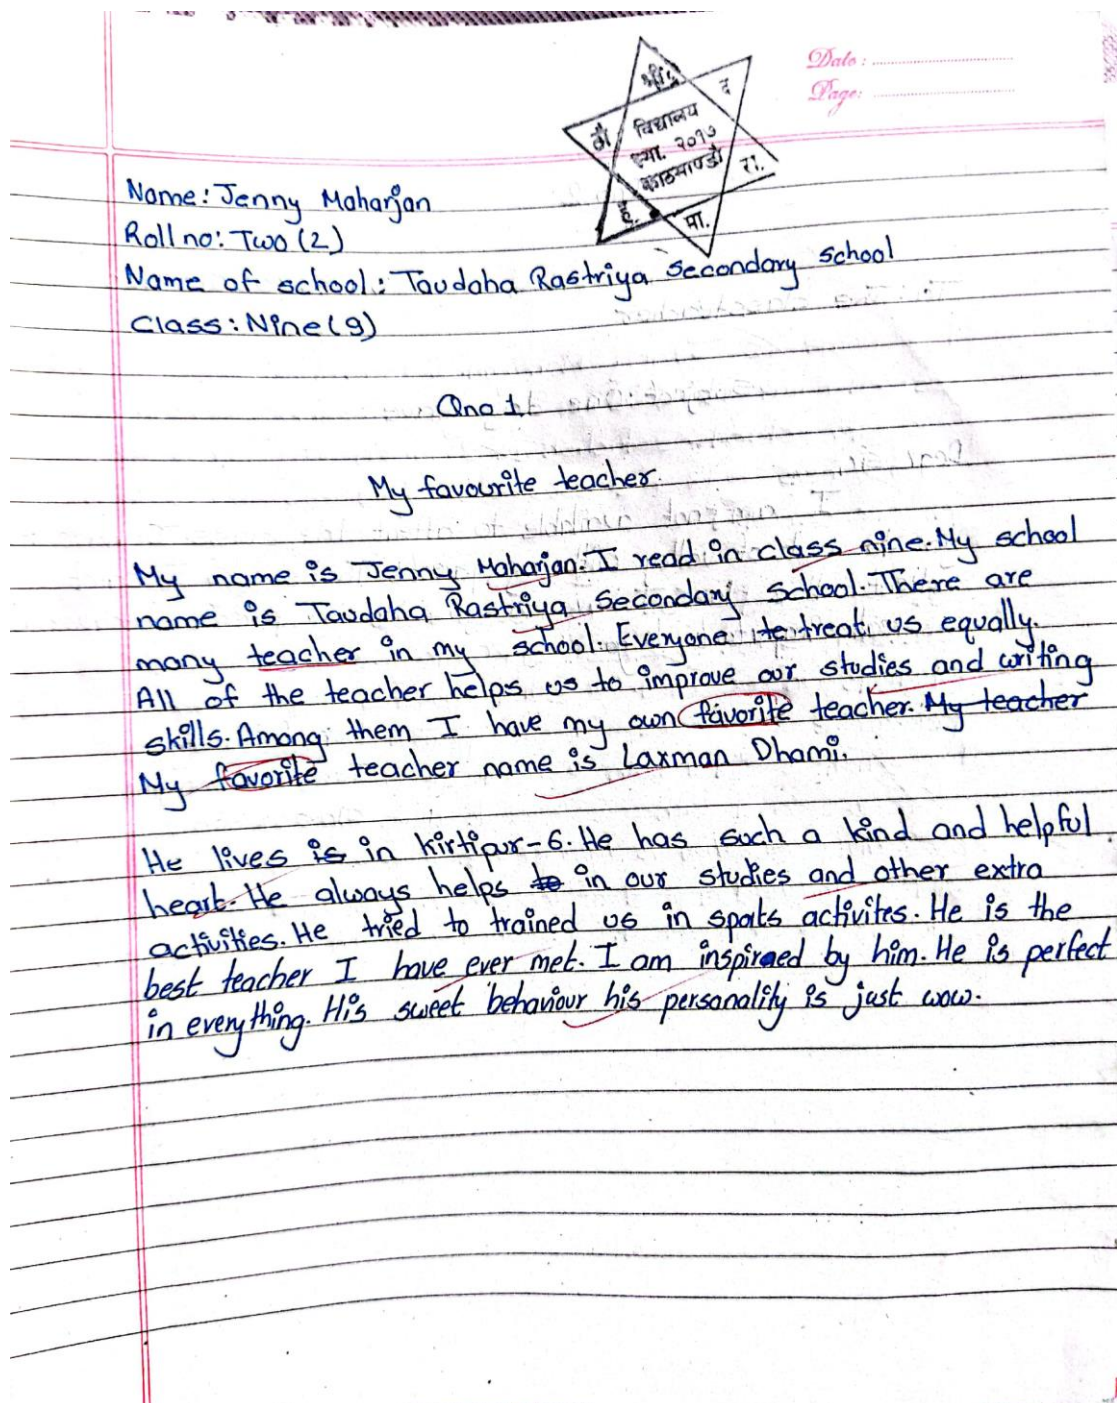 Date:
Page:
श्री
द
ठौ
विद्यालय
स्था. २०१७
काठमाण्डौ
रा.
मा.
Name: Jenny Maharjan
Roll no: Two (2)
Name of school: Taudaha Rastriya Secondary School
Class: Nine (9)
Qno 1.
My favourite teacher.
My name is Jenny Maharjan. I read in class nine. My school
name is Taudaha Rastriya Secondary School. There are
many teacher in my school. Everyone treat us equally.
All of the teacher helps us to improve our studies and writing
skills. Among them I have my own favorite teacher. My teacher
My favorite teacher name is Laxman Dhami.
He lives is in Kirtipur-6. He has such a kind and helpful
heart. He always helps to in our studies and other extra
activities. He tried to trained us in spots activites. He is the
best teacher I have ever met. I am inspired by him. He is perfect
in everything. His sweet behaviour his personality is just wow.